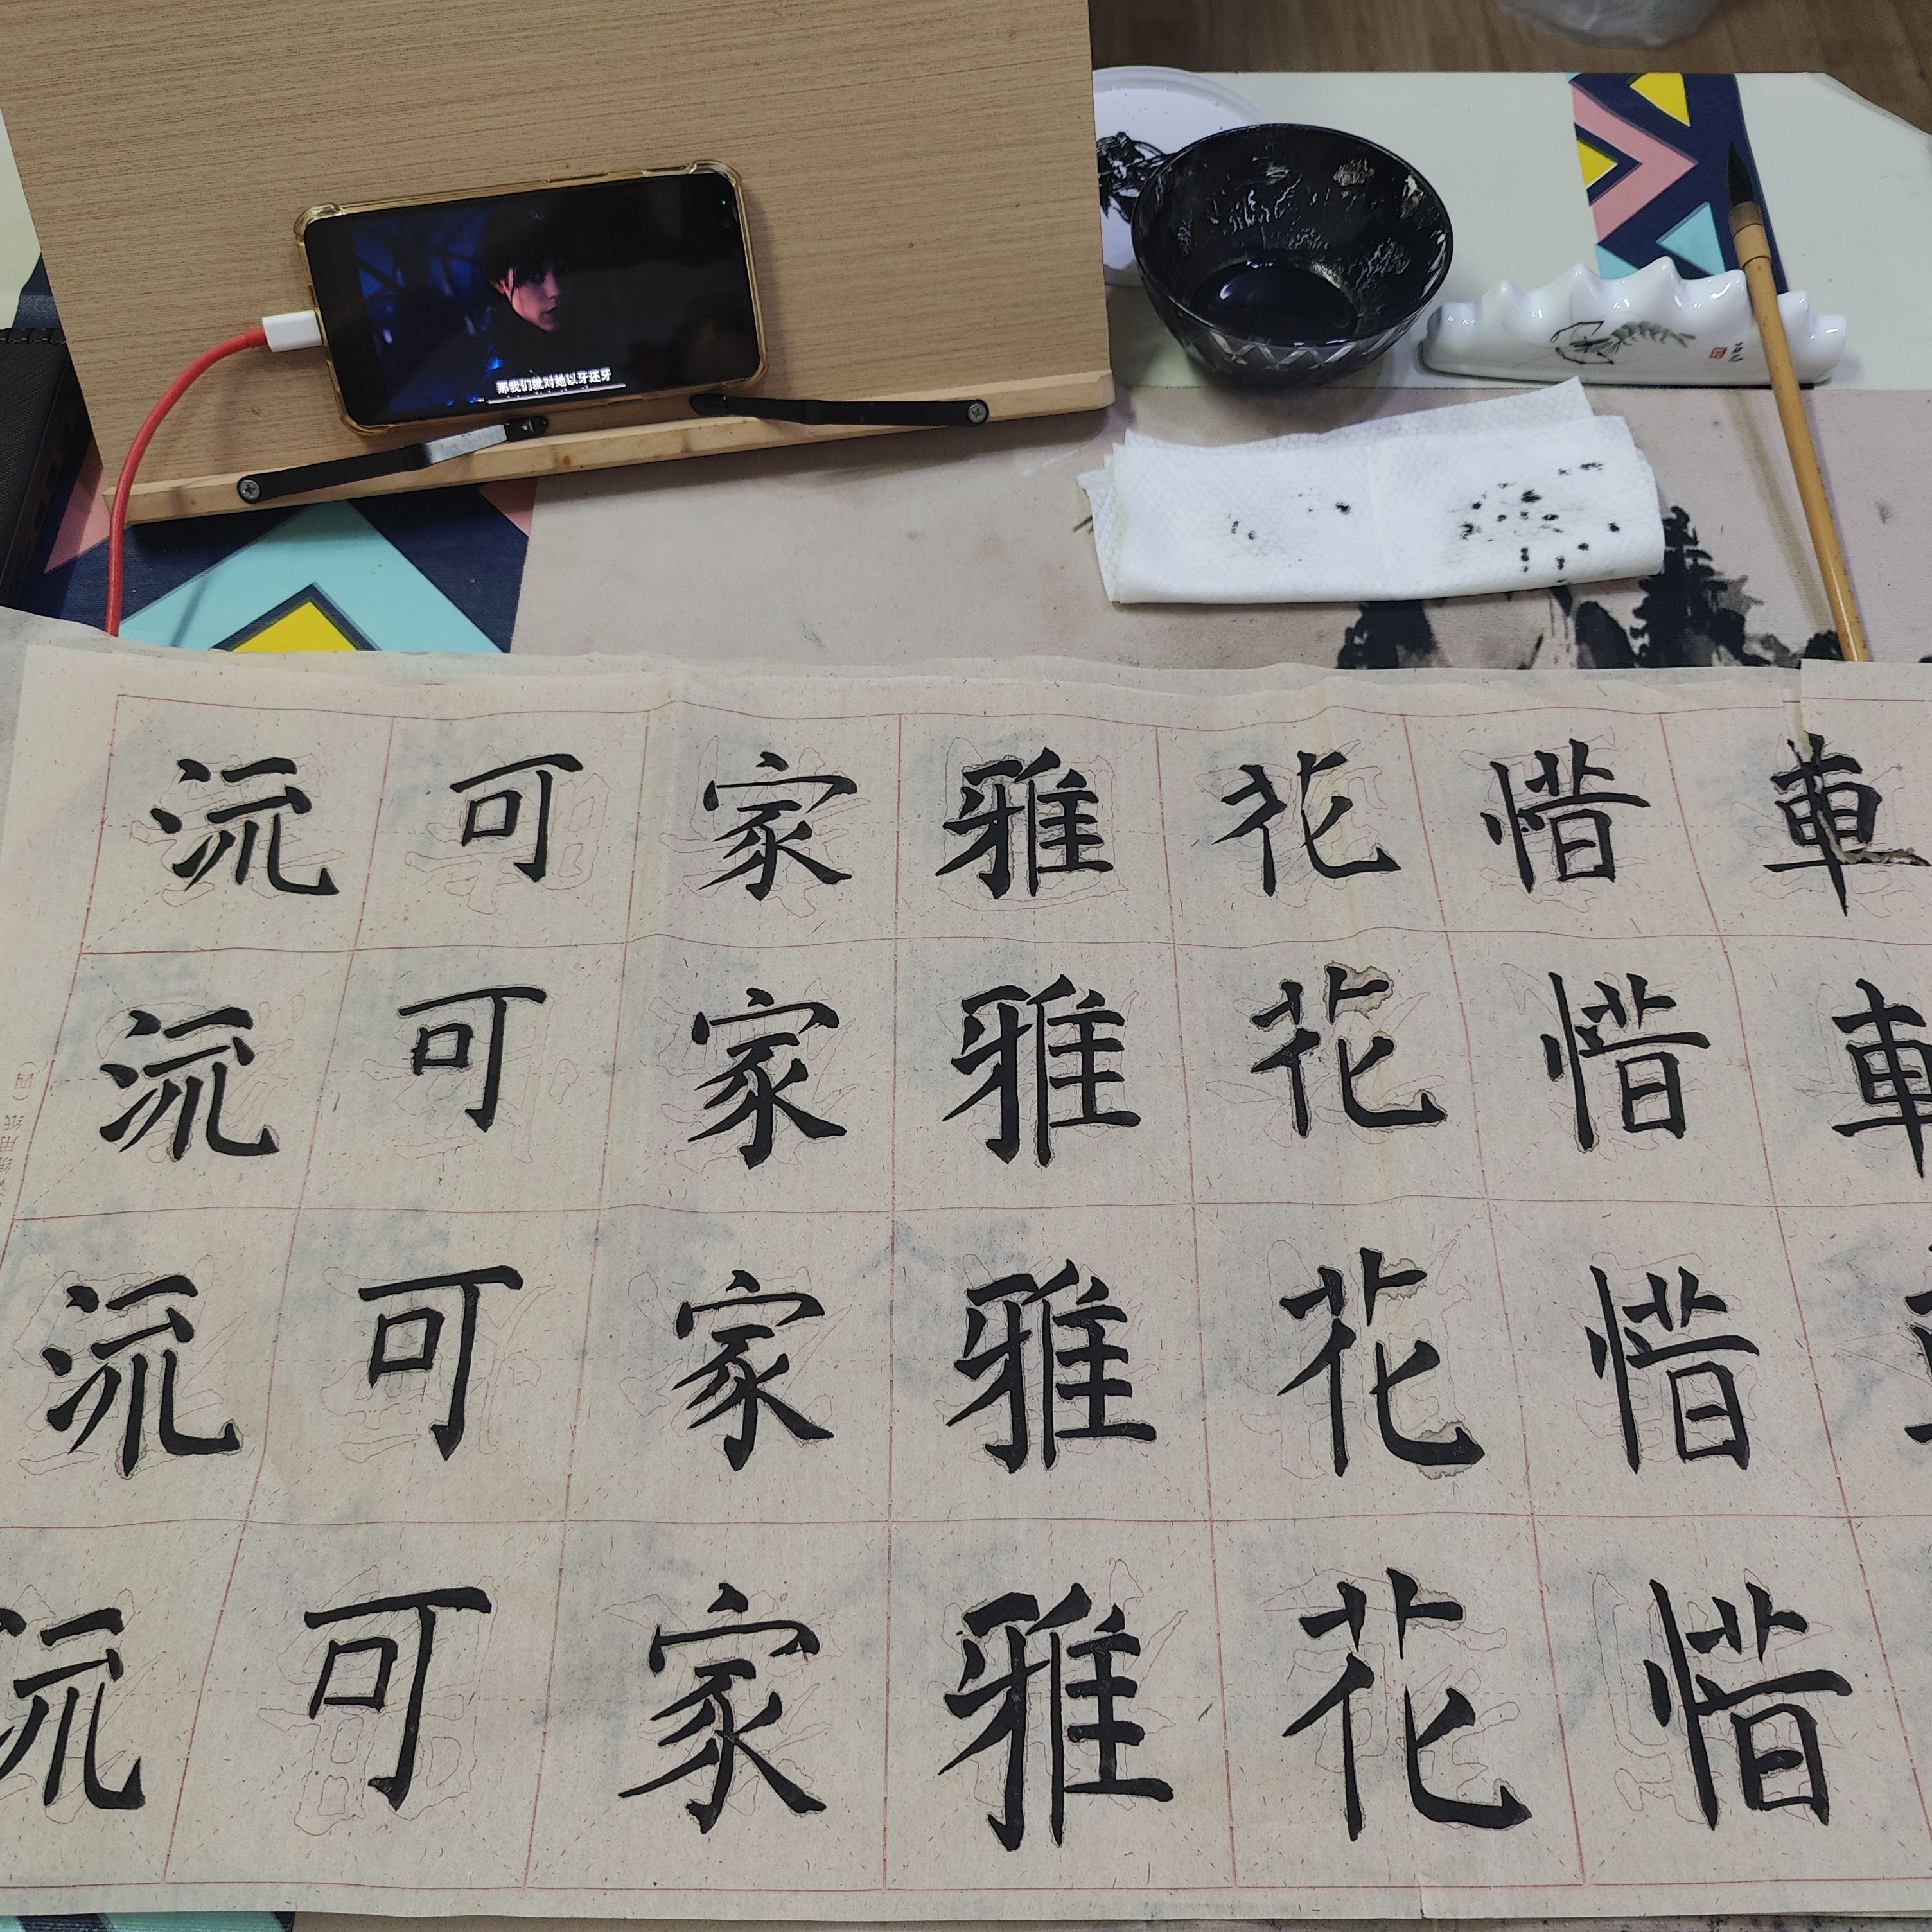 那我们就对她以牙还牙
沅可家雅花惜車
沅可家雅花惜車
沅可家雅花惜
沅可家雅花惜